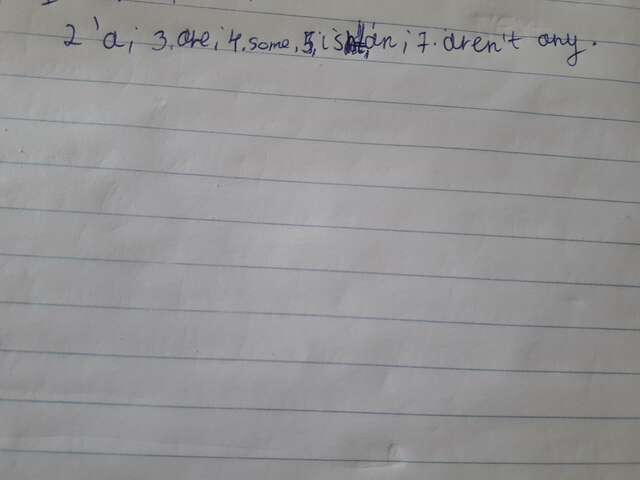 2 'a; 3. are; 4. some, 5, is an; 7. aren't any.